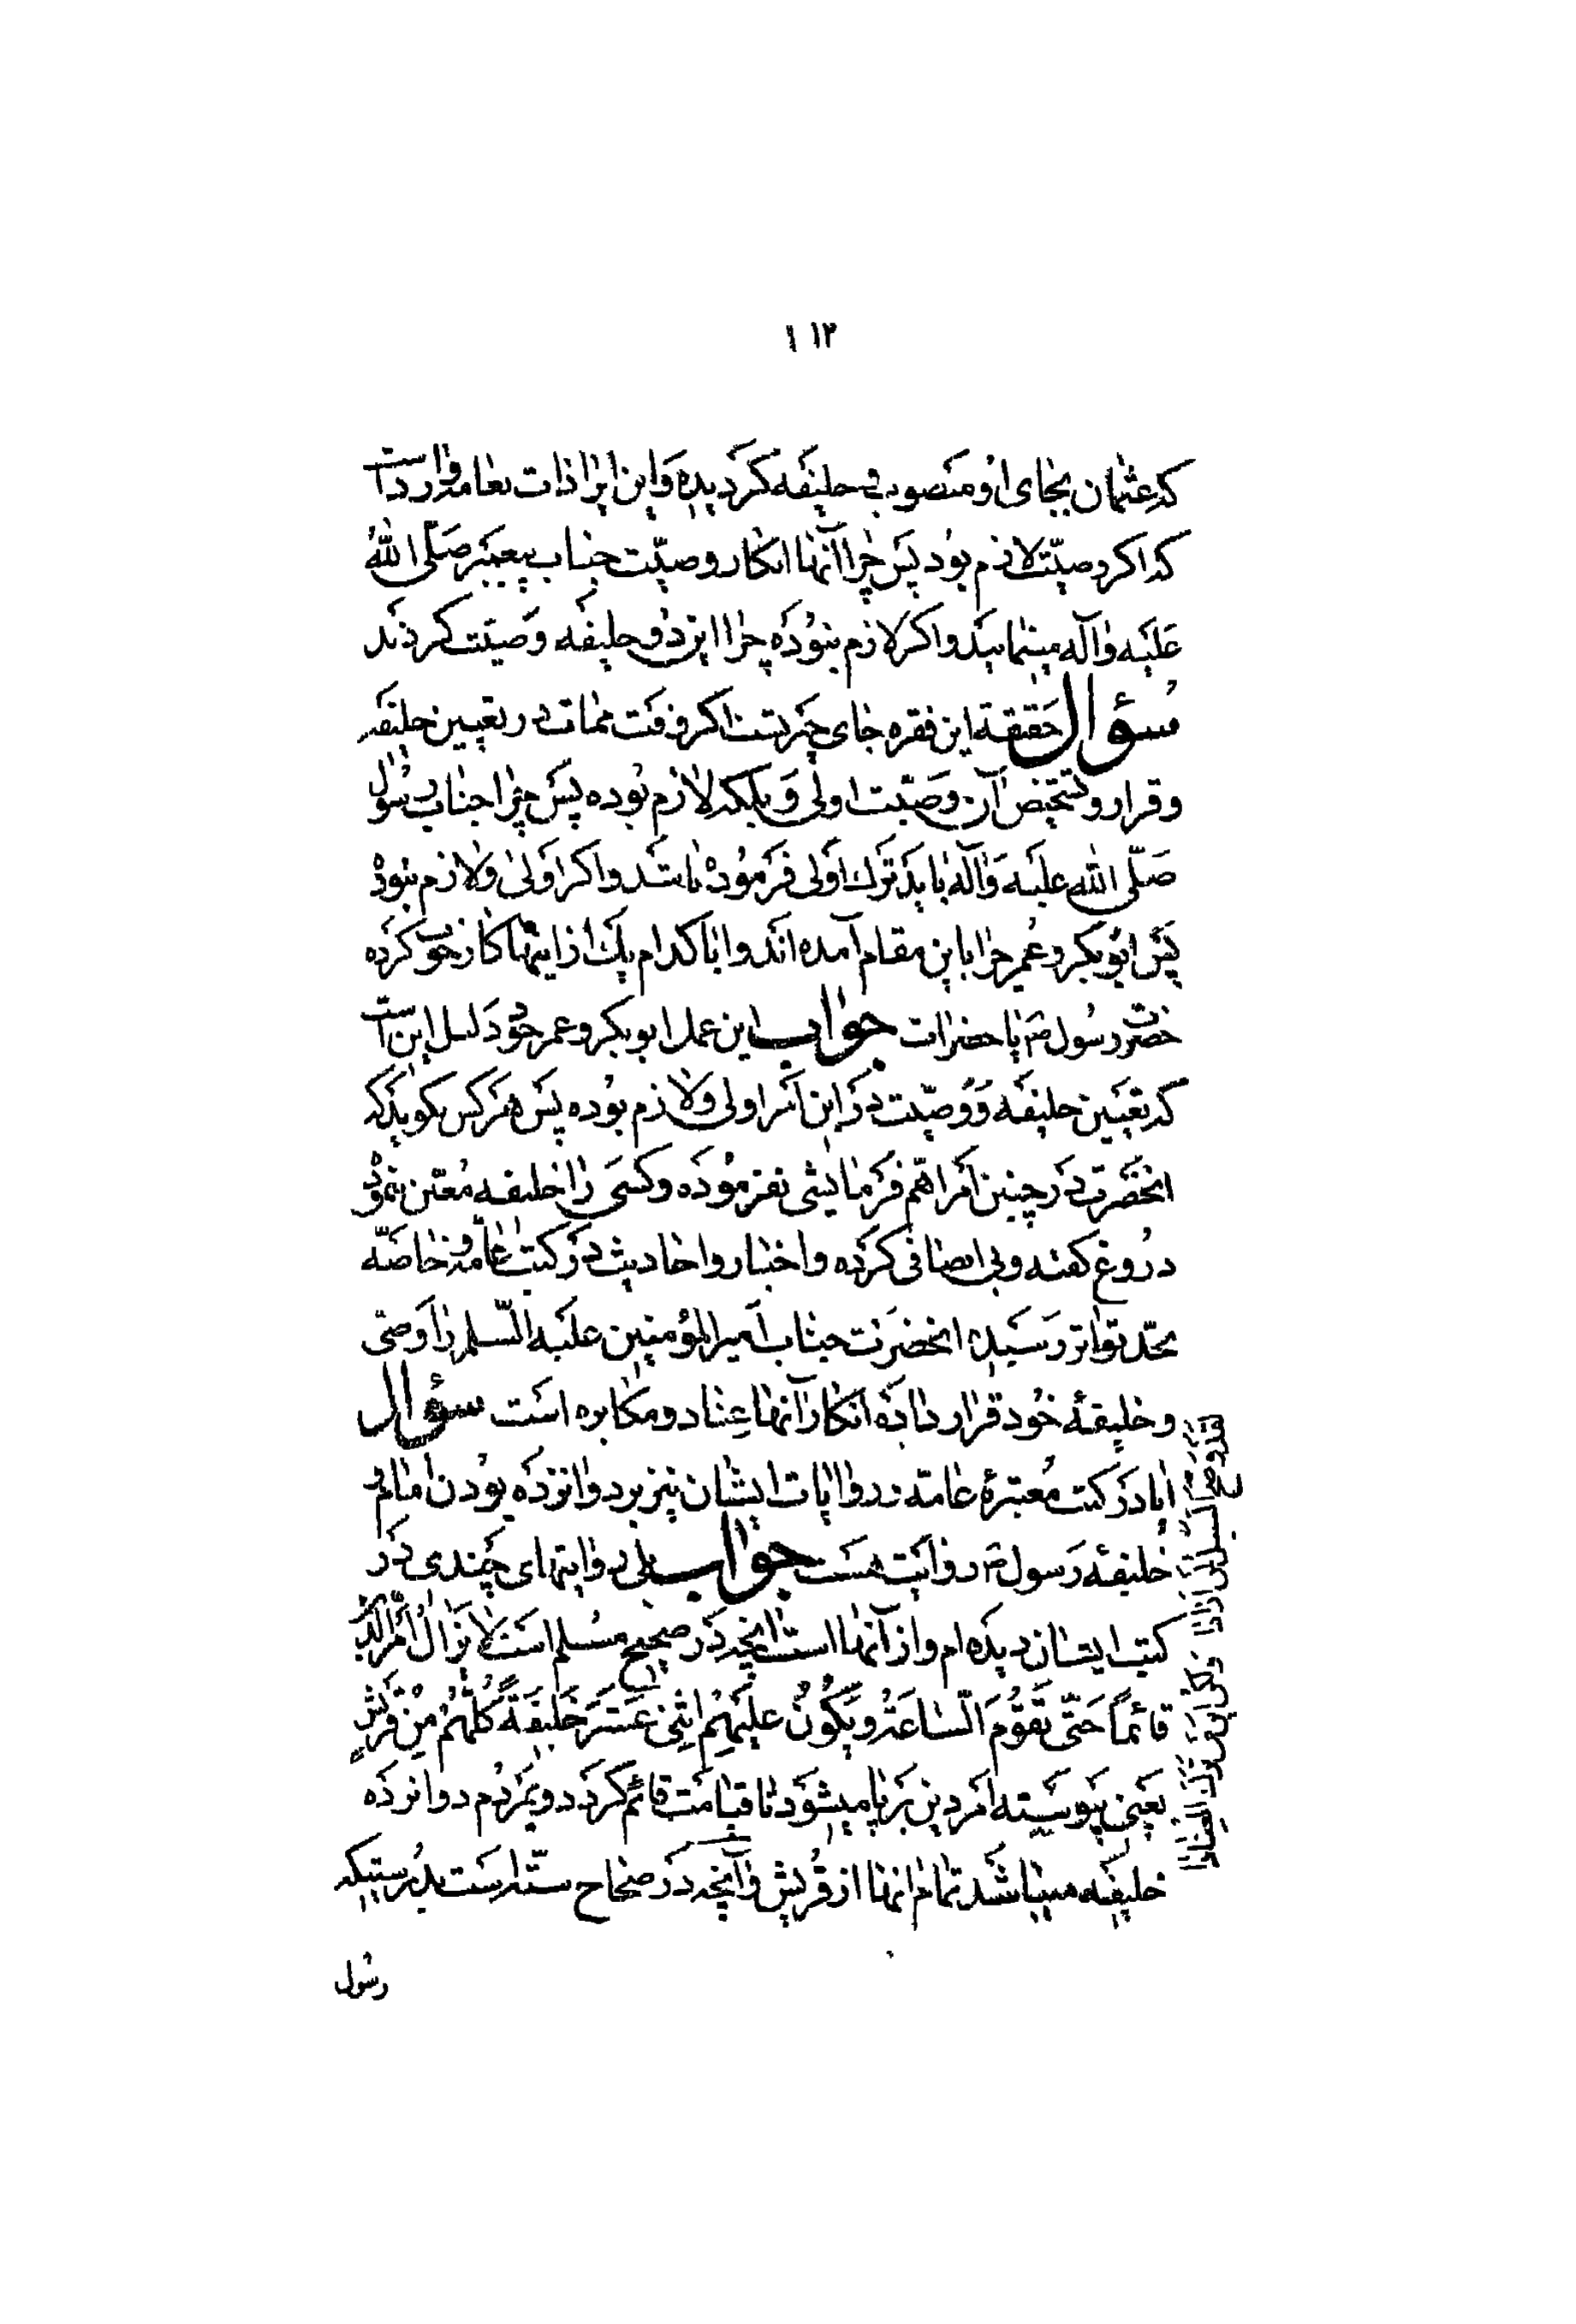 ۱۱۲
که عثمان بجای او منصوب و خلیفه کردیده و این ایرادات بعامه وارد است
که اکر وصیّت لازم بود پس چرا آنها انکار وصیّت جناب پیغمبر صلّی الله
علیه و آله مینمایند و اکر لازم نبوده چرا این دو خلیفه وصیّت کردند
سؤال حقیقة این فقره جای حیرتست اکر وقت ممات در تعیین خلیفه
و قرار و تشخیص آن وصیّت اولی و بلکه لازم بوده پس چرا جناب رسول
صلّی الله علیه و آله باید ترک اولی فرموده باشد و اکر اولی و لازم نبوده
پس ابوبکر و عمر چرا باین مقام آمده اند و ایا کدام یک از اینها کار خوب کرده
حضرت رسول ص یا حضرات جواب این عمل ابوبکر و عمر خود دلیل اینست
که تعیین خلیفه و وصیّت در این امر اولی و لازم بوده پس هر کس بکوید که
انحضرت در چنین امر اهمّ فرمایشی نفرموده و کسی را خلیفه معیّن ننموده
دروغ کفته و بی انصافی کرده و اخبار و احادیث در کتب عامّه و خاصّه
بحدّ تواتر رسیده انحضرت جناب امیرالمؤمنین علیه السّلم را وصّی
و خلیفهٔ خود قرار داده انکار آنها عناد و مکابره است سؤال
ایا در کتب معتبرهٔ عامّه و روایات ایشان نیز بر دوانزده بودن امام و
خلیفهٔ رسول ص روایت هست جواب بلی روایتهای چندی در
کتب ایشان دیده ام و از آنها است انچه در صحیح مسلم است لا یزال امر الدّین
قائماً حتّی تقوم السّاعة و یکون علیهم اثنی عشر خلیفةً کلّهم من قریش
یعنی پیوسته امر دین برپا میشود تا قیامت قائم کردد و بمردم دوانزده
خلیفه میباشد تمام انها از قریش و آنچه در صحاح ستّه است بدرستیکه
رسول